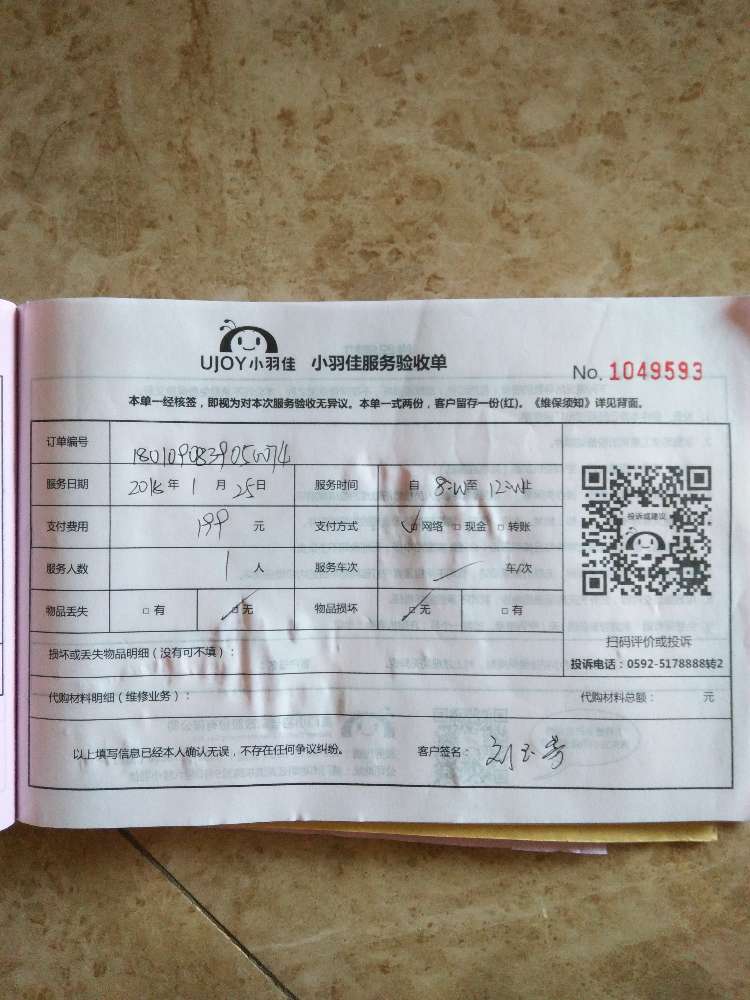 UJOY小羽佳 小羽佳服务验收单
No. 1049593
本单一经核签，即视为对本次服务验收无异议。本单一式两份，客户留存一份(红)。《维保须知》详见背面。
订单编号
服务日期 2018年 1 月 25日 服务时间 自 8:00至 12:00止
支付费用 199 元 支付方式 ☑网络 □现金 □转账
服务人数 1 人 服务车次 车/次
物品丢失 □有 ☑无 物品损坏 ☑无 □有
投诉或建议
扫码评价或投诉
投诉电话：0592-5178888转2
损坏或丢失物品明细（没有可不填）：
代购材料明细（维修业务）： 代购材料总额： 元
以上填写信息已经本人确认无误，不存在任何争议纠纷。 客户签名：